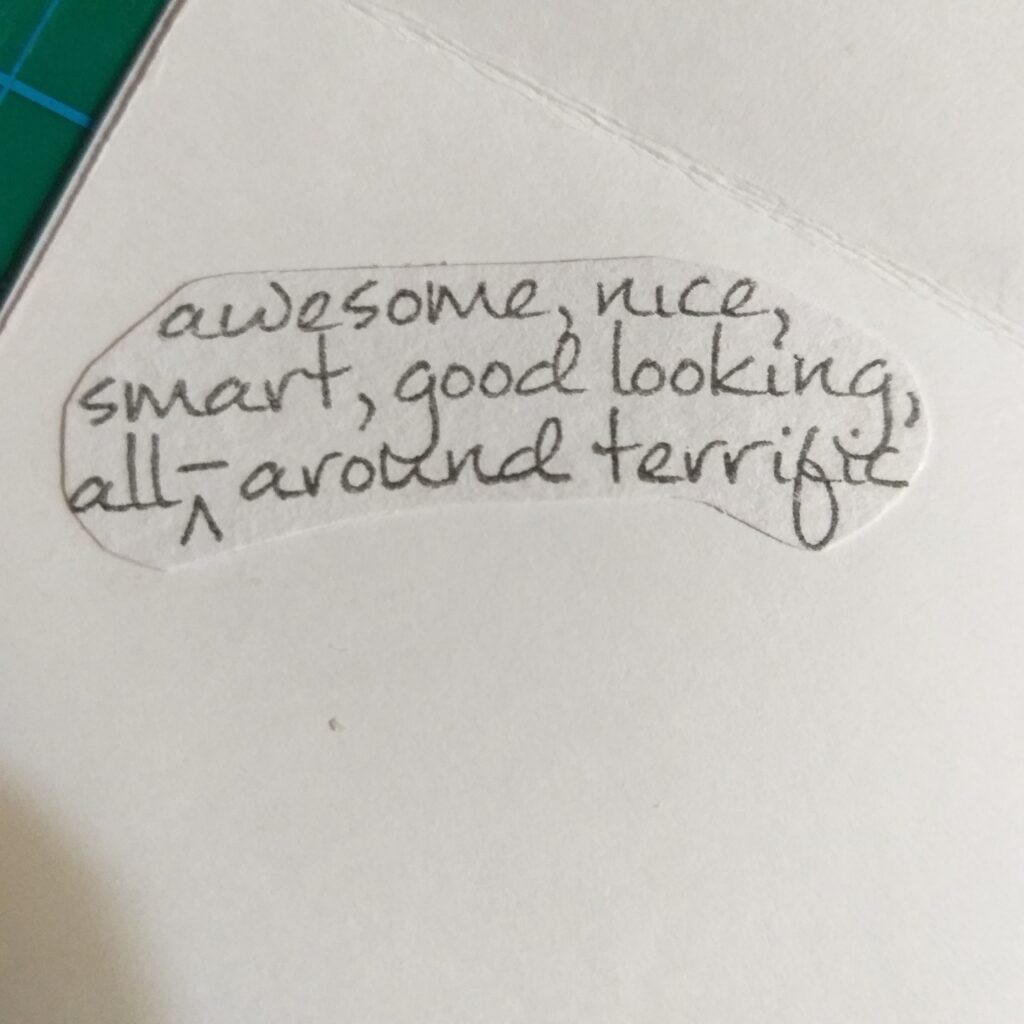 awesome, nice,
smart, good looking,
all-around terrific